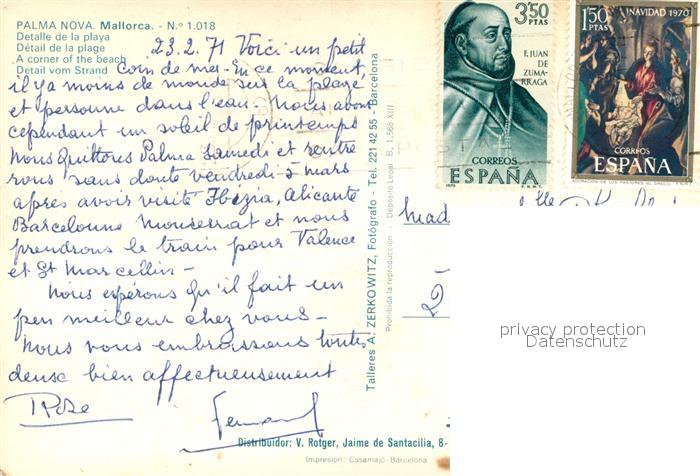 PALMA NOVA. Mallorca. - N.º 1.018
Detalle de la playa
Détail de la plage
A corner of the beach
Detail vom Strand
23.2.71 Voici un petit
coin de mer. En ce moment,
il y a moins de monde sur la plage
et personne dans l'eau - nous avons
cependant un soleil de printemps
Nous quittons Palma samedi et rentre
rons sans doute vendredi 5 mars
après avoir visité Ibezia, Alicante
Barcelonne Monserrat et nous
prendrons le train pour Valence
et St Marcellin -
Nous espérons qu'il fait un
peu meilleur chez vous -
Nous vous embrassons toutes
deux bien affectueusement
Rose
Fernand
Talleres A. ZERKOWITZ, Fotógrafo - Tel. 221 42 55 - Barcelona
Prohibida la reproducción - Depósito Legal B. 1.568-XIII
3'50
PTAS
F. JUAN
DE
ZUMA-
RRAGA
CORREOS
ESPAÑA
1970
F.N.M.T.
1'50
PTAS
NAVIDAD 1970
CORREOS
ESPAÑA
ADORACION DE LOS PASTORES EL GRECO
Mad
elle
privacy protection
Datenschutz
Distribuidor: V. Rotger, Jaime de Santacilia, 8-
Impresión: Casamajó-Barcelona